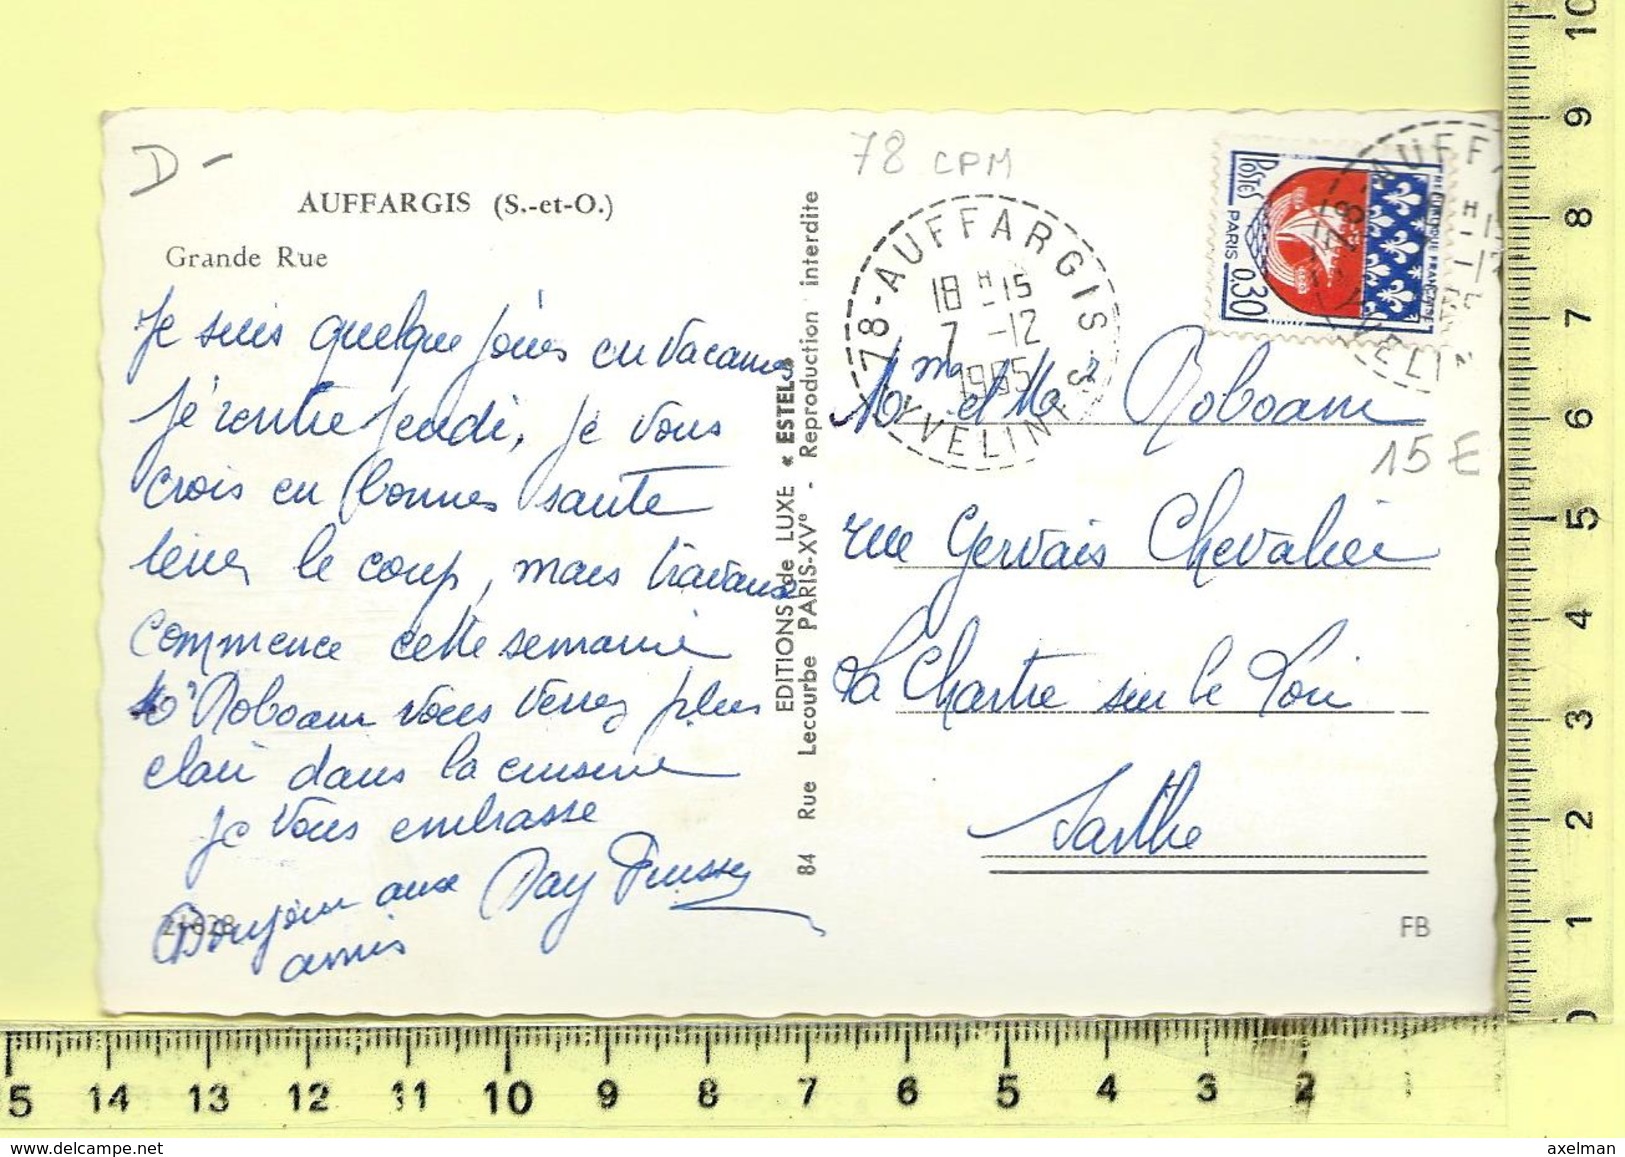 D-
AUFFARGIS (S.-et-O.)
Grande Rue
Je suis quelque jours en vacances
Je rentre jeudi, je vous
crois en bonnes santé
tenez le coup, mais travaux
commence cette semaine
Roboam vous verrez plus
clair dans la cuisine
je vous embrasse
Bonjour aux
amis
21628
EDITIONS de LUXE « ESTEL »
84 Rue Lecourbe PARIS-XVe - Reproduction interdite
78 CPM
78-AUFFARGIS
18 H-15
7 -12
1965
YVELINES
POSTES
PARIS 0,30
REPUBLIQUE FRANÇAISE
Mme et Mr Roboam
15 E
rue Gervais Chevalier
La Chartre sur le Loir
Sarthe
FB
10
9
8
7
6
5
4
3
2
1
0
5 14 13 12 11 10 9 8 7 6 5 4 3 2 1
www.delcampe.net
axelman